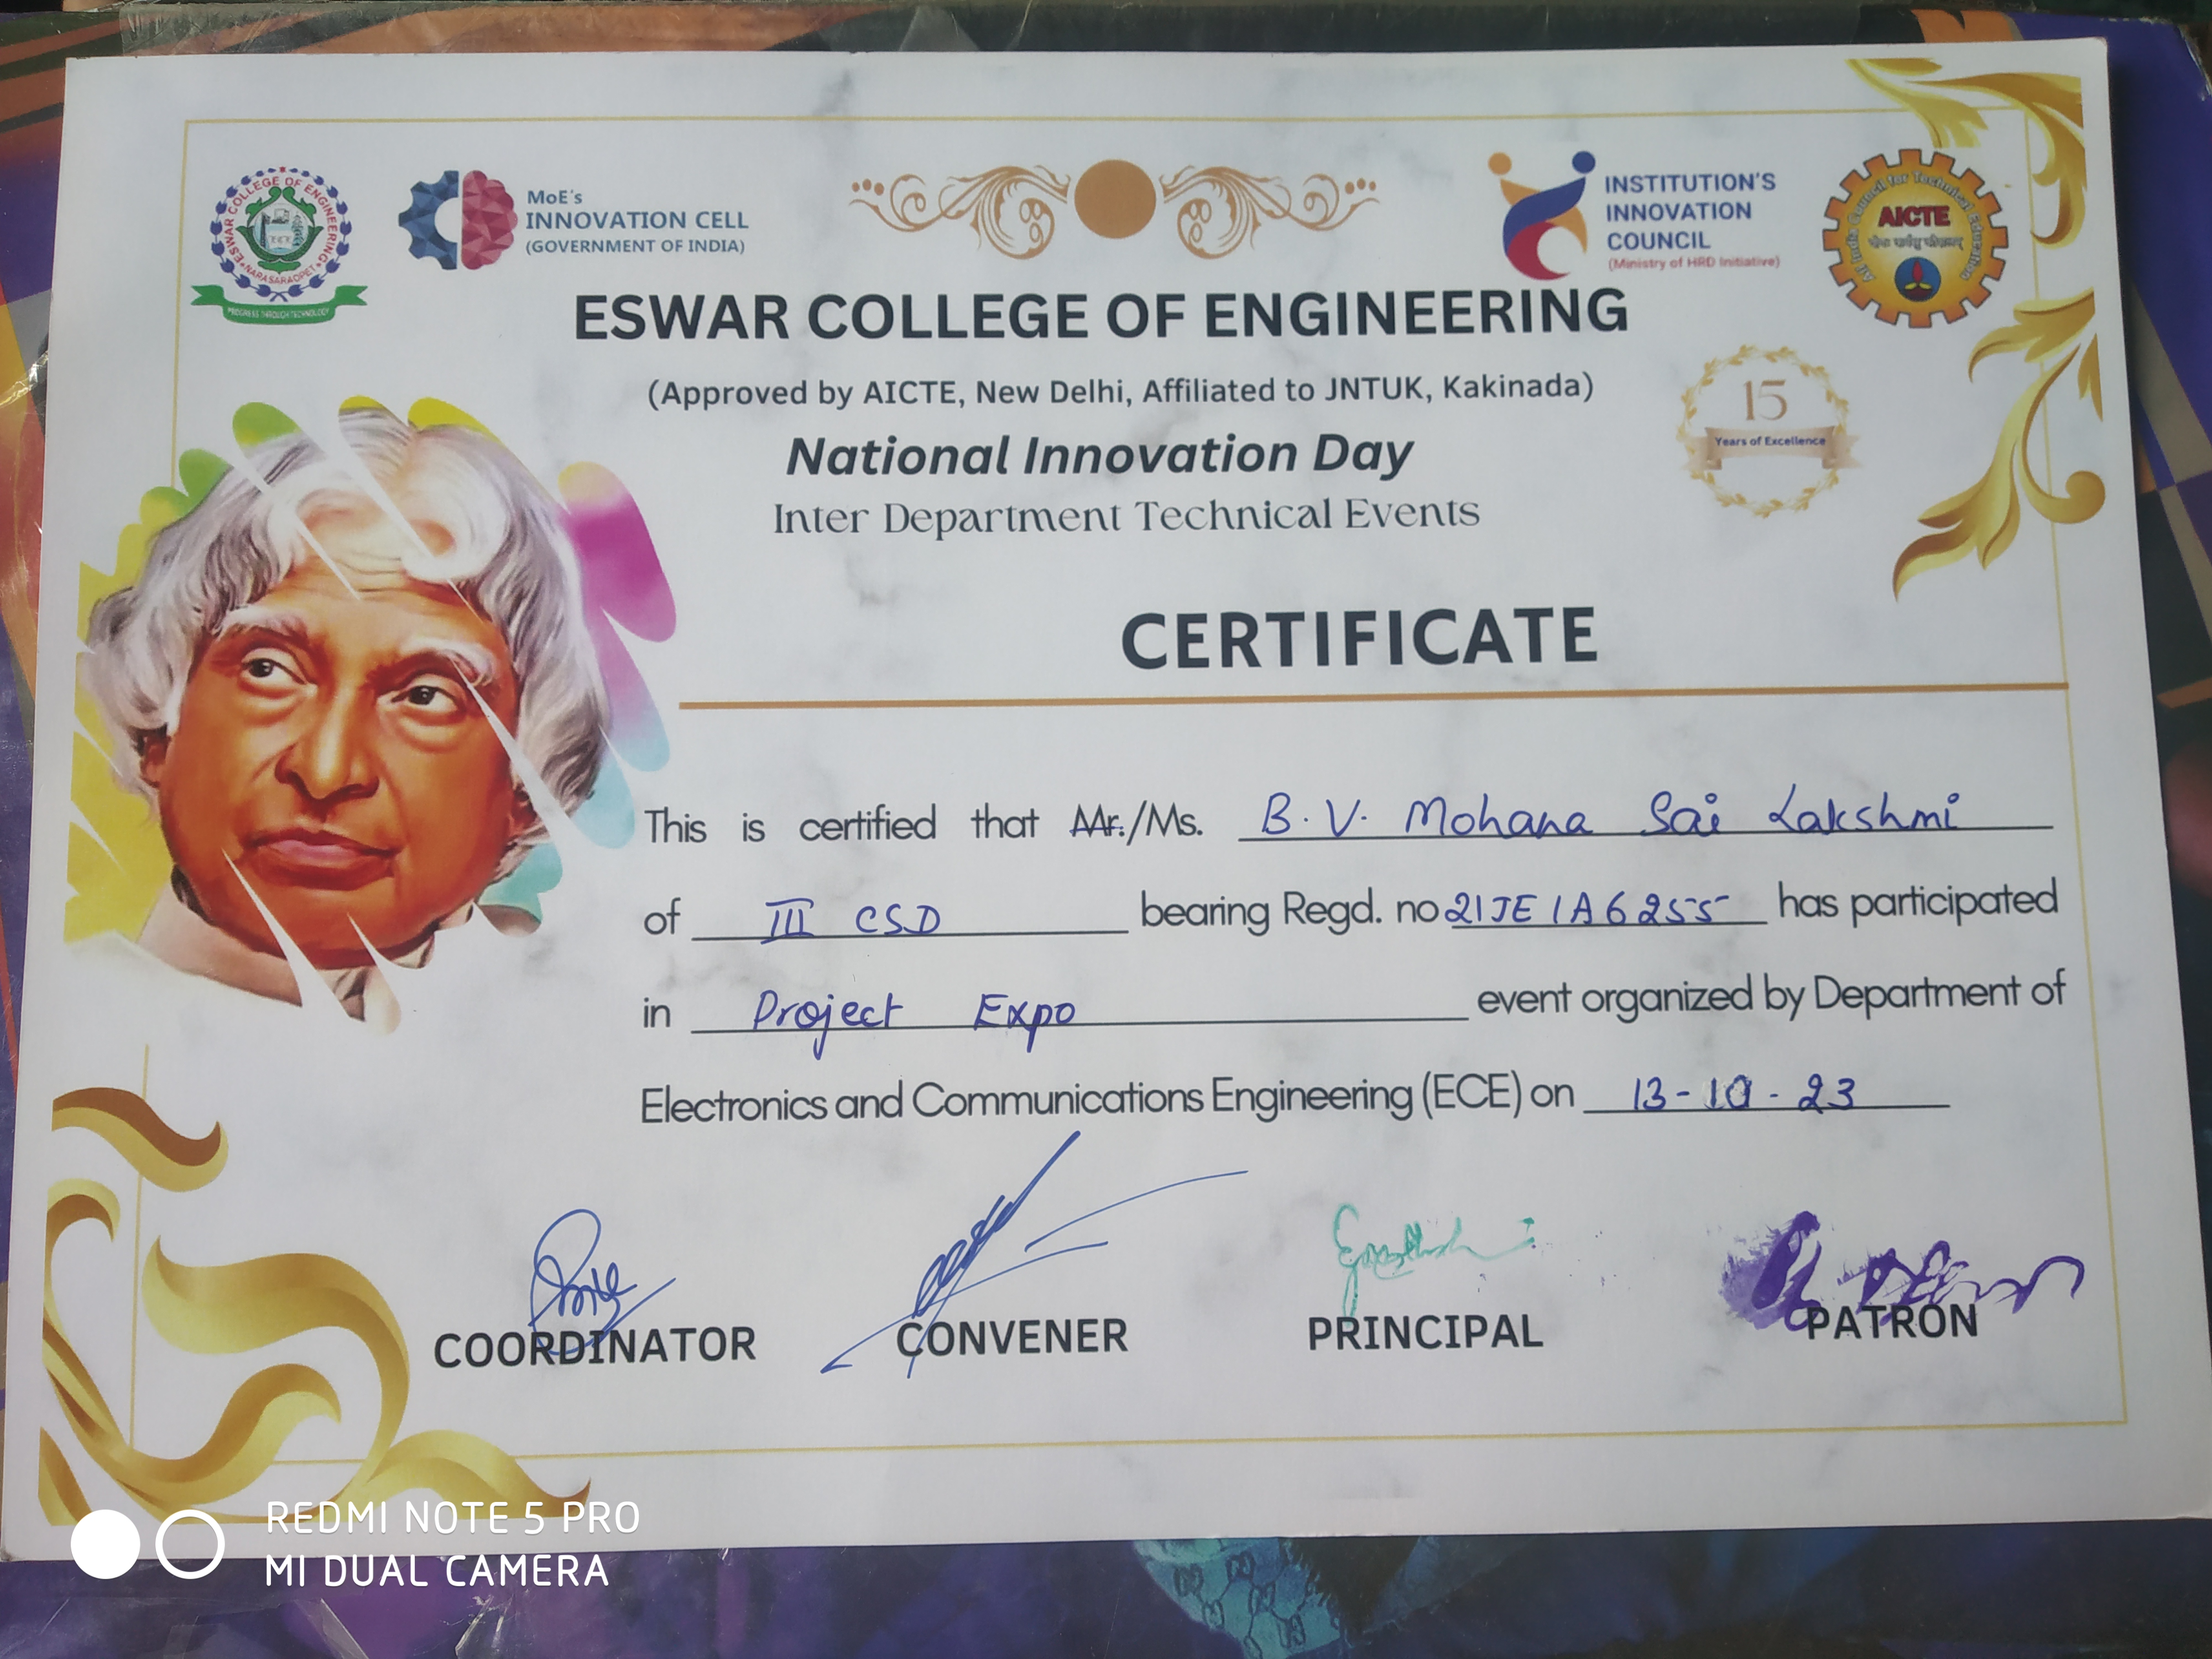 ESWAR COLLEGE OF ENGINEERING
NARASARAOPET
PROGRESS THROUGH TECHNOLOGY
MoE's
INNOVATION CELL
(GOVERNMENT OF INDIA)
INSTITUTION'S
INNOVATION
COUNCIL
(Ministry of HRD Initiative)
All India Council for Technical Education
AICTE
ESWAR COLLEGE OF ENGINEERING
(Approved by AICTE, New Delhi, Affiliated to JNTUK, Kakinada)
15
Years of Excellence
National Innovation Day
Inter Department Technical Events
CERTIFICATE
This is certified that Mr./Ms. B. V. Mohana Sai Lakshmi
of III CSD bearing Regd. no 21JE1A6255 has participated
in Project Expo event organized by Department of
Electronics and Communications Engineering (ECE) on 13-10-23
COORDINATOR CONVENER PRINCIPAL PATRON
REDMI NOTE 5 PRO
MI DUAL CAMERA